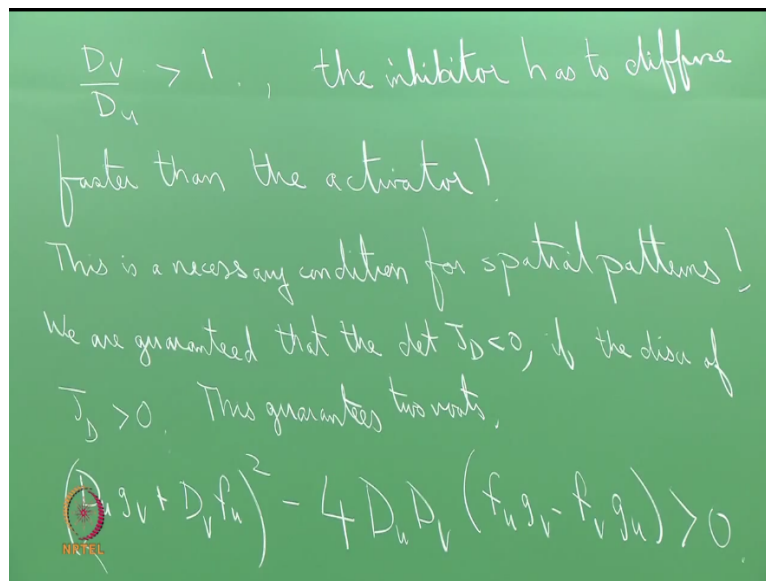 D_V / D_u > 1 . , the inhibitor has to diffuse
faster than the activator!
This is a necessary condition for spatial patterns!
We are guaranteed that the det J_D < 0, if the discr of
J_D > 0. This guarantees two roots.
(D_u g_v + D_v f_u)^2 - 4 D_u D_v (f_u g_v - f_v g_u) > 0.
NPTEL